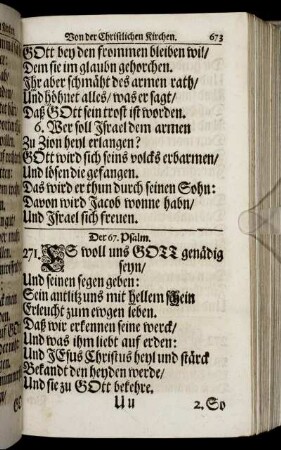 Von der Christlichen Kirchen. 673
GOtt bey den frommen bleiben wil/
Dem sie im glaubn gehorchen.
Ihr aber schmäht des armen rath/
Und höhnet alles/ was er sagt/
Daß GOtt sein trost ist worden.
6. Wer soll Israel dem armen
Zu Zion heyl erlangen?
GOtt wird sich seins volcks erbarmen/
Und lösen die gefangen.
Das wird er thun durch seinen Sohn:
Davon wird Jacob wonne habn/
Und Israel sich freuen.
Der 67. Psalm.
271. ES woll uns GOTT genädig
seyn/
Und seinen segen geben:
Sein antlitz uns mit hellem schein
Erleucht zum ewgen leben.
Daß wir erkennen seine werck/
Und was ihm liebt auf erden:
Und JEsus Christus heyl und stärck
Bekandt den heyden werde/
Und sie zu GOtt bekehre.
Uu 2. So